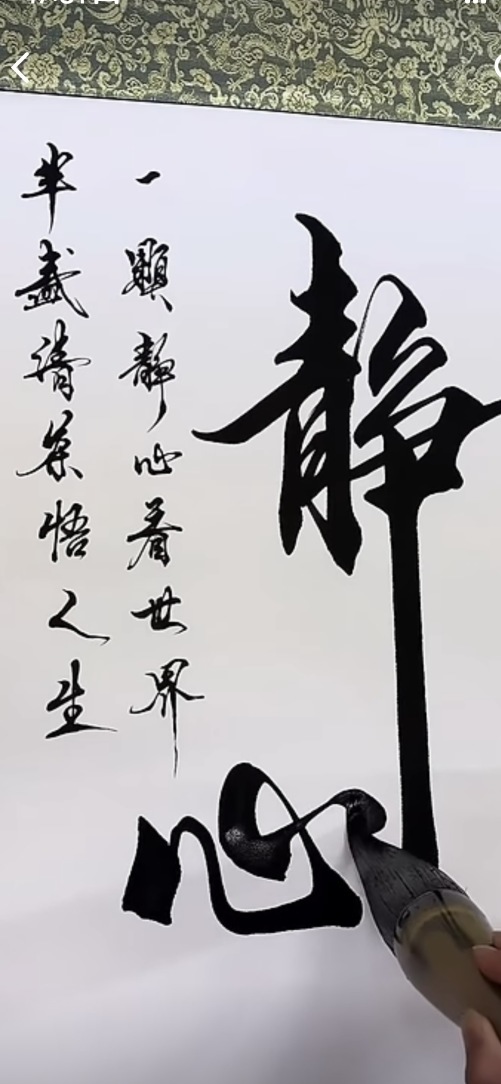 静心
一顆静心看世界
半盞清茶悟人生